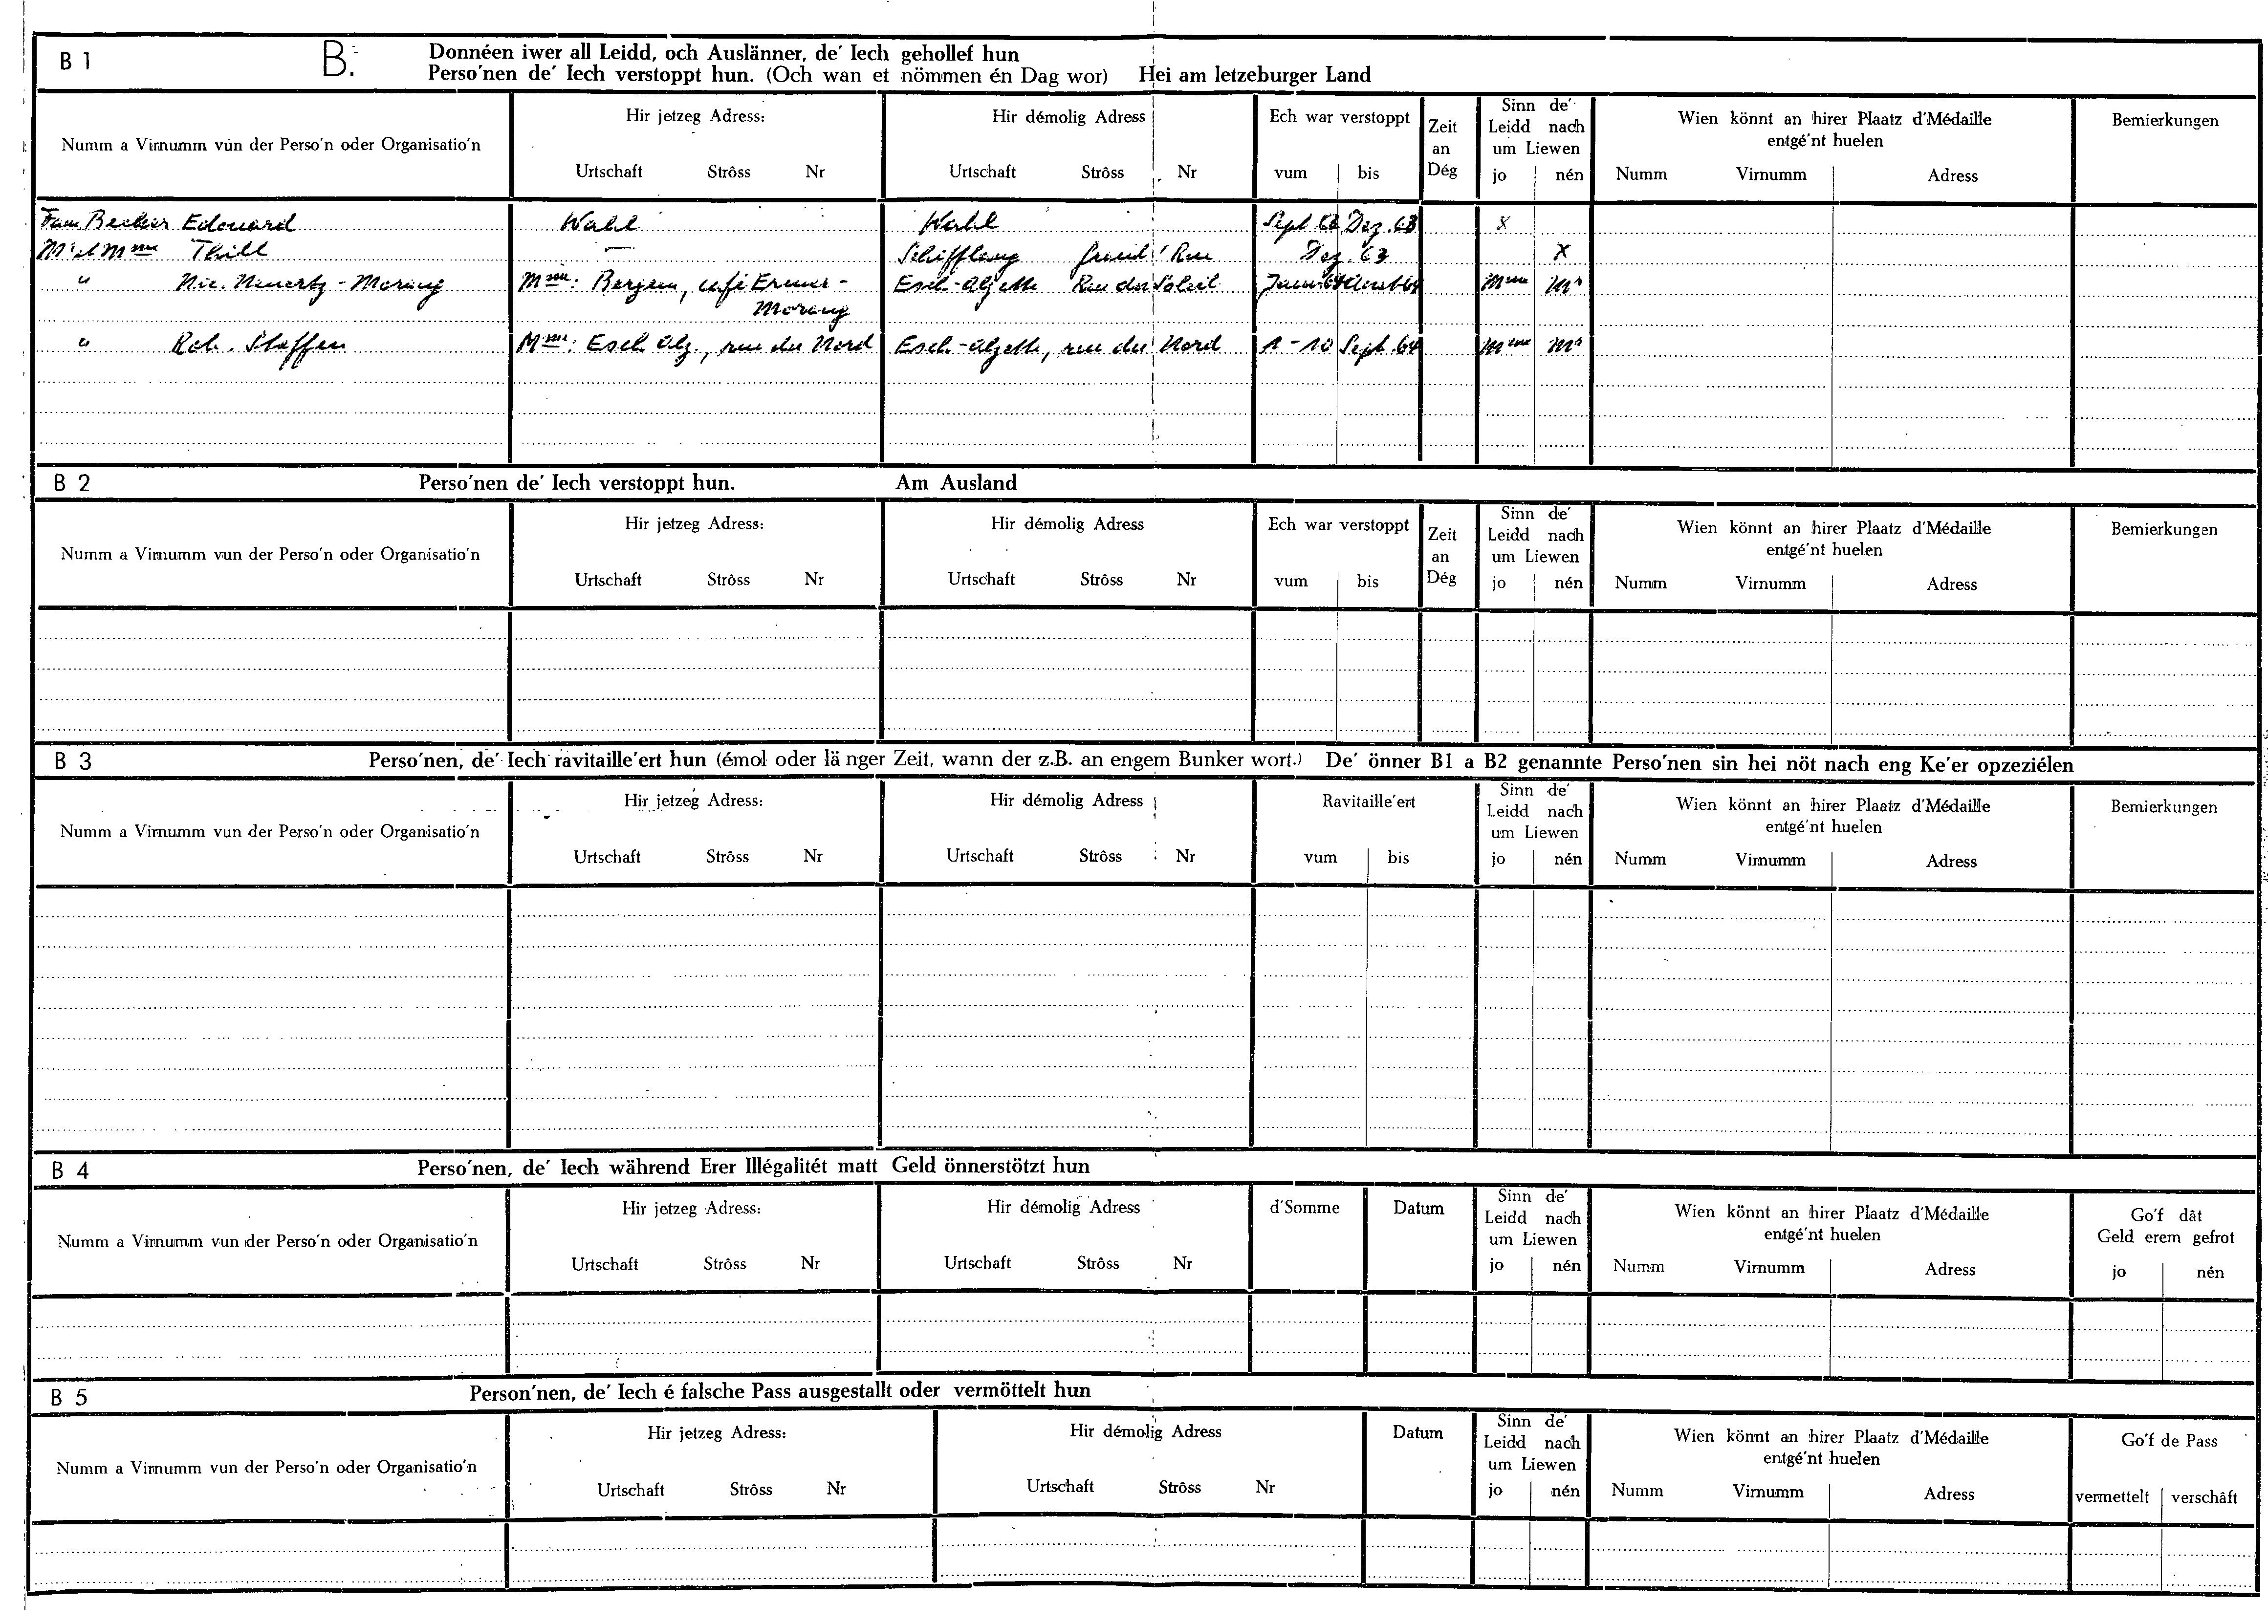 B 1 B. Donnéen iwer all Leidd, och Auslänner, de' Iech gehollef hun
Perso'nen de' Iech verstoppt hun. (Och wan et nömmen én Dag wor) Hei am letzeburger Land
Numm a Virnumm vun der Perso'n oder Organisatio'n
Hir jetzeg Adress:
Urtschaft Strôss Nr
Hir démolig Adress
Urtschaft Strôss Nr
Ech war verstoppt
vum bis
Zeit
an
Dég
Sinn de'
Leidd nach
um Liewen
jo nén
Wien könnt an hirer Plaatz d'Médaille
entgé'nt huelen
Numm Virnumm Adress
Bemierkungen
Fam Becker Edouard Wahl Wahl Sept Dez. x
Mr et Mme Thill — Schifflang Grand' Rue Dez. x
" Nic. - Moring Mme: café - Esch-Alzette Rue du Soleil Mme Mr
Moreng
" Rob. Steffen Mme: Esch Alz., rue du Nord Esch-Alzette, rue du Nord 1-10 Sept. 44 Mme Mr
B 2 Perso'nen de' Iech verstoppt hun. Am Ausland
Numm a Virnumm vun der Perso'n oder Organisatio'n
Hir jetzeg Adress:
Urtschaft Strôss Nr
Hir démolig Adress
Urtschaft Strôss Nr
Ech war verstoppt
vum bis
Zeit
an
Dég
Sinn de'
Leidd nach
um Liewen
jo nén
Wien könnt an hirer Plaatz d'Médaille
entgé'nt huelen
Numm Virnumm Adress
Bemierkungen
B 3 Perso'nen, de' Iech ravitaille'ert hun (émol oder länger Zeit, wann der z.B. an engem Bunker wort.) De' önner B1 a B2 genannte Perso'nen sin hei nöt nach eng Ke'er opzeziélen
Numm a Virnumm vun der Perso'n oder Organisatio'n
Hir jetzeg Adress:
Urtschaft Strôss Nr
Hir démolig Adress
Urtschaft Strôss Nr
Ravitaille'ert
vum bis
Sinn de'
Leidd nach
um Liewen
jo nén
Wien könnt an hirer Plaatz d'Médaille
entgé'nt huelen
Numm Virnumm Adress
Bemierkungen
B 4 Perso'nen, de' Iech während Erer Illégalitét matt Geld önnerstötzt hun
Numm a Virnumm vun der Perso'n oder Organisatio'n
Hir jetzeg Adress:
Urtschaft Strôss Nr
Hir démolig Adress
Urtschaft Strôss Nr
d'Somme
Datum
Sinn de'
Leidd nach
um Liewen
jo nén
Wien könnt an hirer Plaatz d'Médaille
entgé'nt huelen
Numm Virnumm Adress
Go'f dât
Geld erem gefrot
jo nén
B 5 Person'nen, de' Iech é falsche Pass ausgestallt oder vermöttelt hun
Numm a Virnumm vun der Perso'n oder Organisatio'n
Hir jetzeg Adress:
Urtschaft Strôss Nr
Hir démolig Adress
Urtschaft Strôss Nr
Datum
Sinn de'
Leidd nach
um Liewen
jo nén
Wien könnt an hirer Plaatz d'Médaille
entgé'nt huelen
Numm Virnumm Adress
Go'f de Pass
vermettelt verschâft